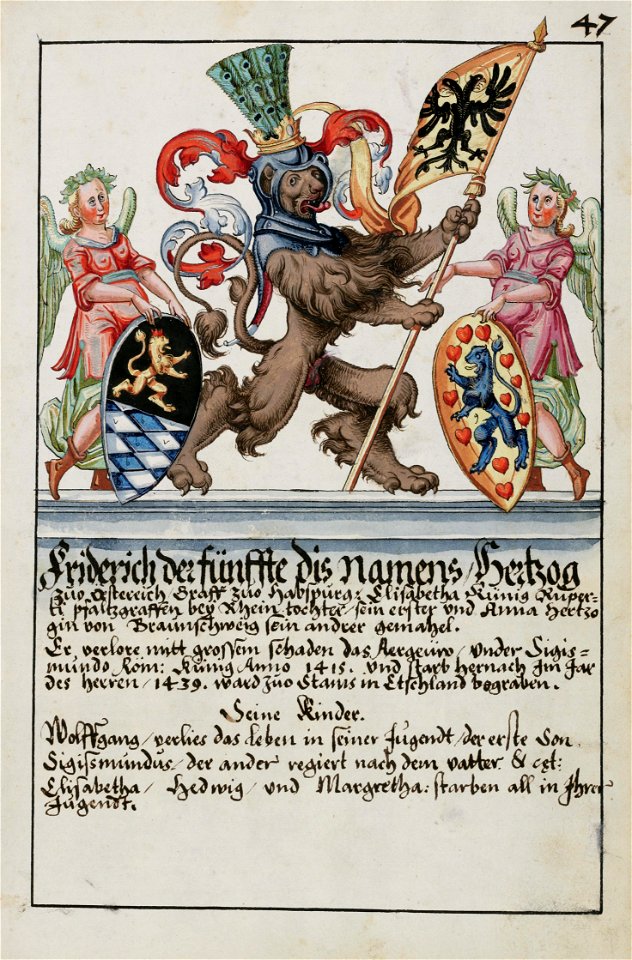 47
Friderich der fünffte dis Namens / Hertzog
zuo Österreich Graff zuo Habspurg: Elisabetha Künig Ruper-
ti pfaltzgraffen bey Rhein tochter / sein erster und Anna Hertzo
gin von Braunschweig sein andrer gemahel.
Er verlore mitt grossem schaden das Aergeüw / under Sigis=
mundo Röm: Künig Anno 1415. und starb hernach Im Jar
des herren / 1439. ward zuo Stams in Etschland begraben.
Seine Kinder.
Wolffgang / verlies das leben in seiner Jugendt / der erste Son
Sigissmundus / der ander regiert nach dem vatter & cęt:
Elisabetha / Hedwig / und Margretha: starben all in Ihrer
Jugendt.